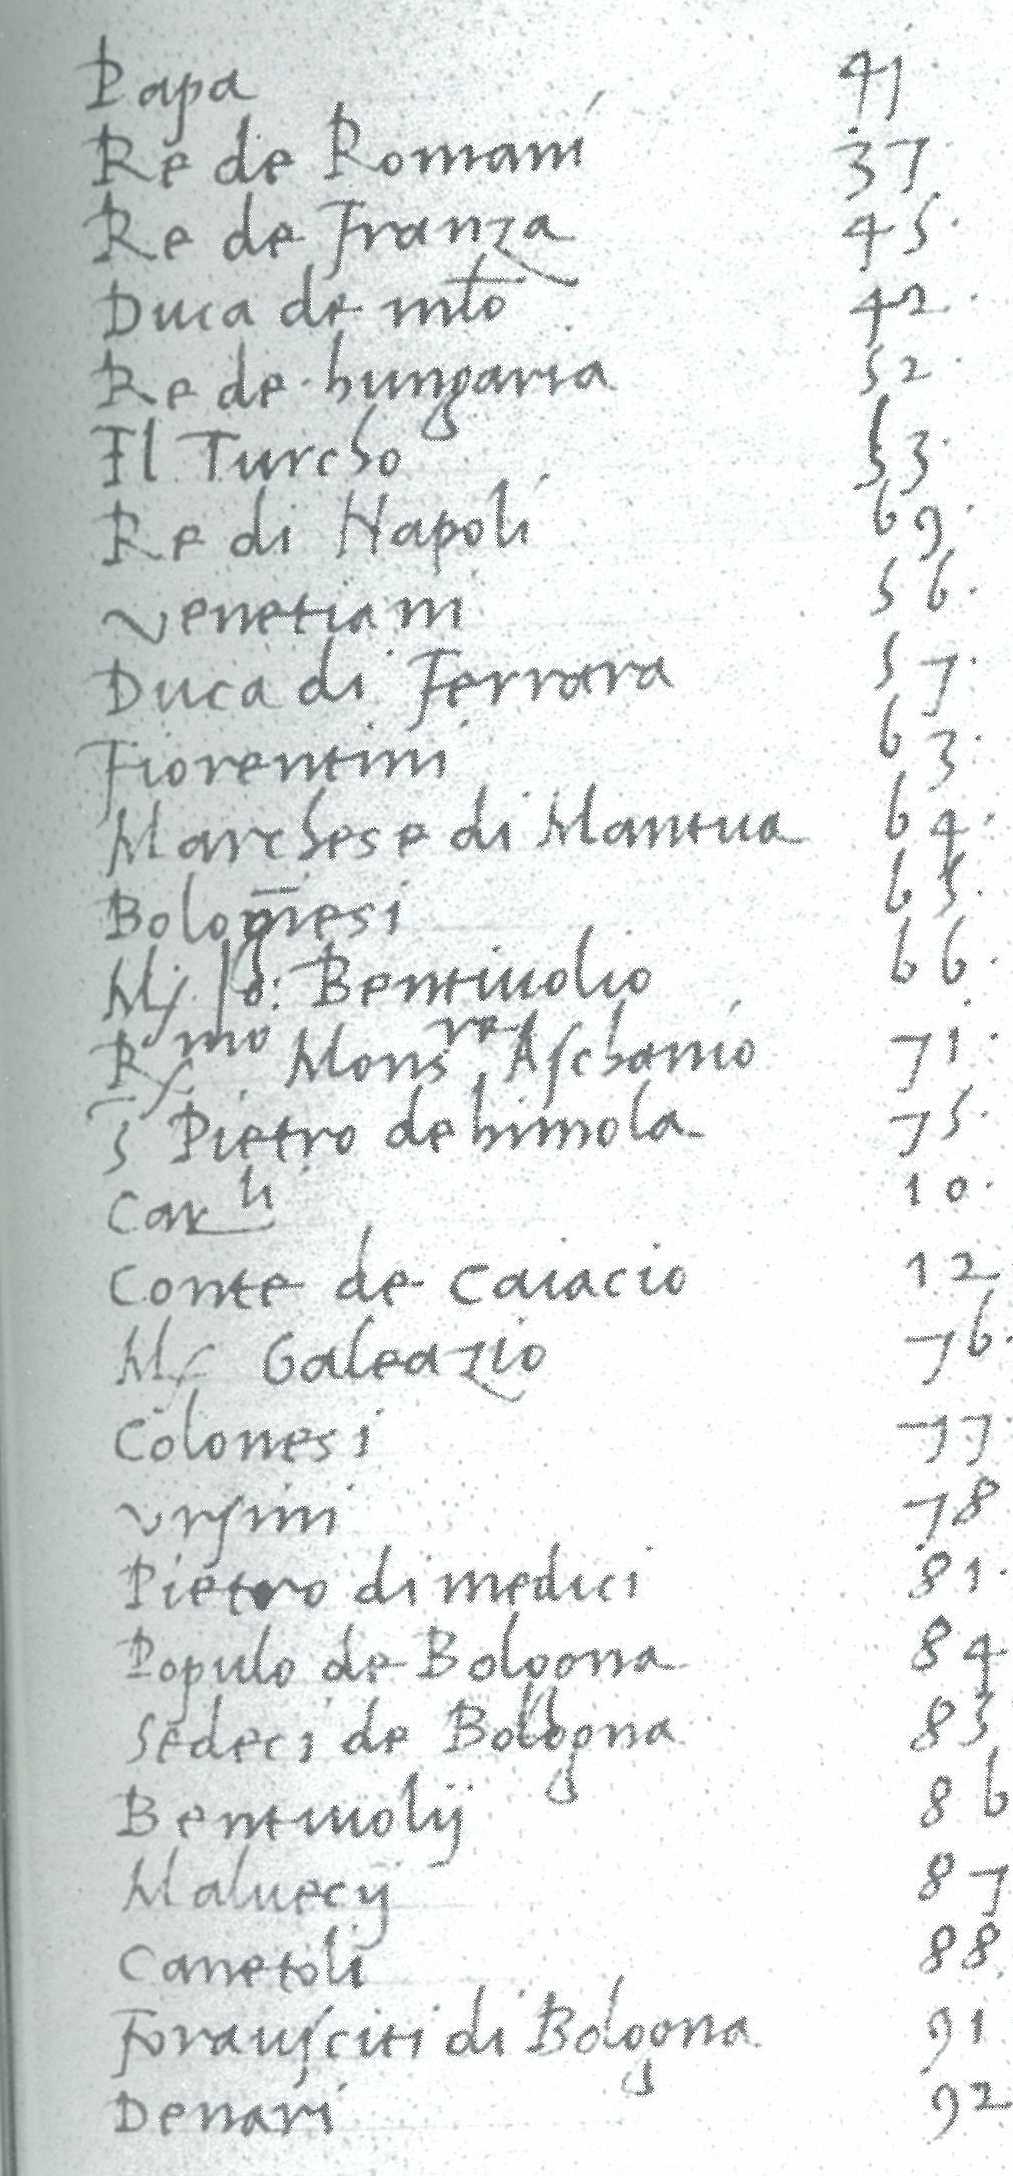 Papa 41.
Re de Romani 37.
Re de Franza 45.
Duca de mlo 42.
Re de hungaria 52.
Il Turcho 53.
Re di Napoli 69.
venetiani 56.
Duca di Ferrara 57.
Fiorentini 63.
Marchese di Mantua 64.
Bolognesi 65.
Bentiuolio 66.
R.mo Monsre Aschanio 71.
S Pietro de himola 75.
Carli 10.
Conte de Caiacio 12
Galeazio 76.
Colonesi 77.
vrsini 78
Pietro di medici 81.
Populo de Bologna 84
Sedeci de Bologna 85
Bentiuolij 86
Maluecij 87
Canetoli 88
Forausciti di Bologna 91
Denari 92